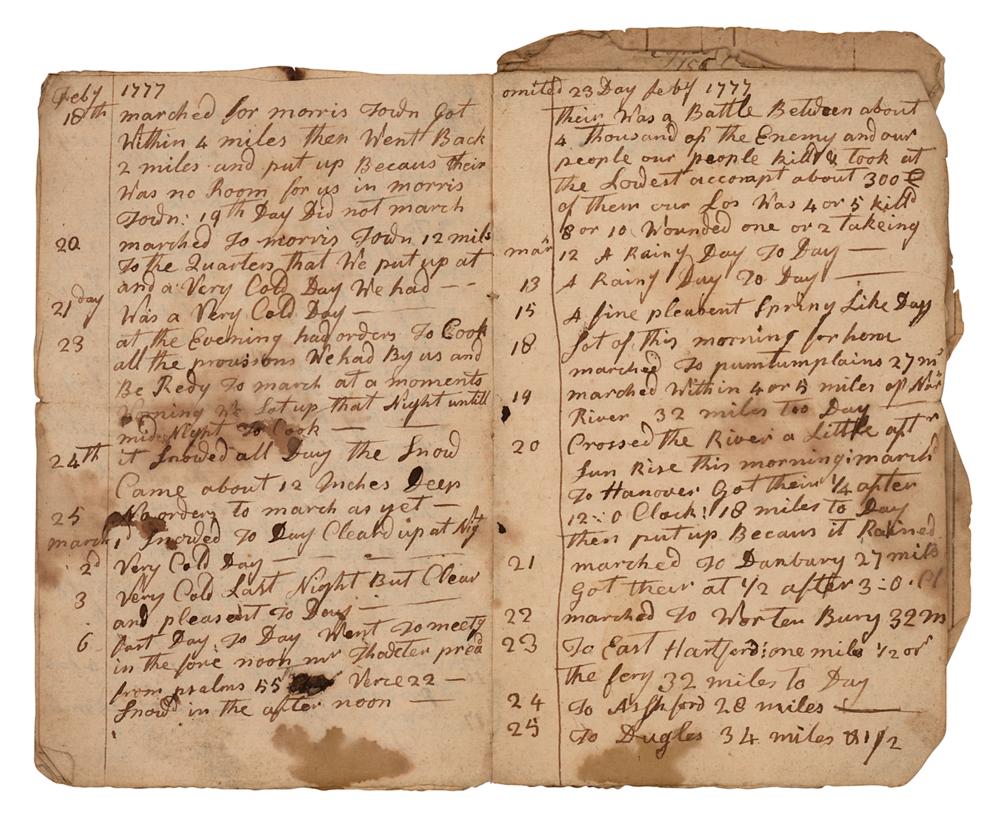 Feby 1777
18th marched for morris Town Got
Within 4 miles then Went Back
2 miles and put up Becaus their
Was no Room for us in morris
Town: 19th Day Did not march
20 marched To morris Town 12 mils
To the Quarters that We put up at
and a Very Cold Day We had
21 day Was a Very Cold Day
23 at the Evening had orders To Cook
all the provisons We had By us and
Be Redy To march at a moments
Worning We Sot up that Night untill
mid Night To Cook
24th it Snowed all Day the Snow
Came about 12 Inches Deep
25 No orders to march as yet
march 1 Snowed To Day Cleard up at Nigt
2d Very Cold Day
3 Very Cold Last Night But Clear
and pleasent To Day
6 fast Day To Day Went To meetg
in the fore noon mr Thacter pred
from psalms 55 Verce 22
Snowd in the after noon
1756
omited 23 Day feby 1777
their Was a Battle Between about
4 Thousand of the Enemy and our
people our people killd & took at
the Lowest accompt about 300
of them our Los Was 4 or 5 killd
8 or 10 Wounded one or 2 takeing
mar 12 A Rainy Day To Day
13 A Rainy Day To Day
15 A fine pleasent Spring Like Day
18 Sot of this morning for home
marched To pumtumplains 27 ms
19 marched Within 4 or 5 miles of Nor
River 32 miles too Day
20 Crossed the River a Little aftr
Sun Rise this morning: march
To Hanover Got their 1/4 after
12:0 Clock: 18 miles to Day
then put up Becaus it Rained
21 marched To Danbury 27 mils
Got their at 1/2 after 3:0 Cl
22 marched To Worten Bury 32 m
23 To East Hartford: one mile 1/2 of
the fery 32 miles to Day
24 To Ashford 28 miles
25 To Dugles 34 miles 1/2